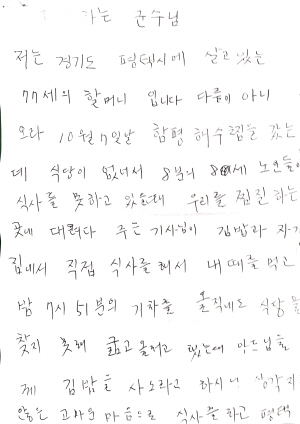 하는 군수님
저는 경기도 평택시에 살고 있는
77세의 할머니 입니다 다름이 아니
오라 10월 7일날 함평 해수찜을 갔는
데 식당이 없어서 8분의 80세 노인들이
식사를 못하고 있을때 우리를 찜질하는
곳에 대려다 주든 기사님이 김밥과 자기
집에서 직접 식사를 해서 내때를 먹고
밤 7시 51분의 기차를 올적에도 식당을
찾지 못해 굶고 올려고 했는데
김밥을 사오라고 하시니 생각지
않은 고마운 마음으로 식사를 하고 평택